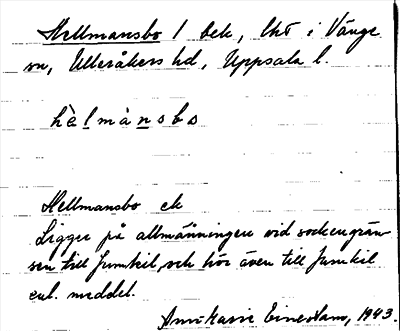 Hellmansbo 1 bek, Uht i Vänge
sn, Ulleråkers hd, Uppsala l.
hèlmànsbo
Hellmansbo ek
Ligger på allmänningen vid sockengrän
sen till Jumkil, och hör även till Jumkil
enl. meddel.
Ann-Marie 1943.